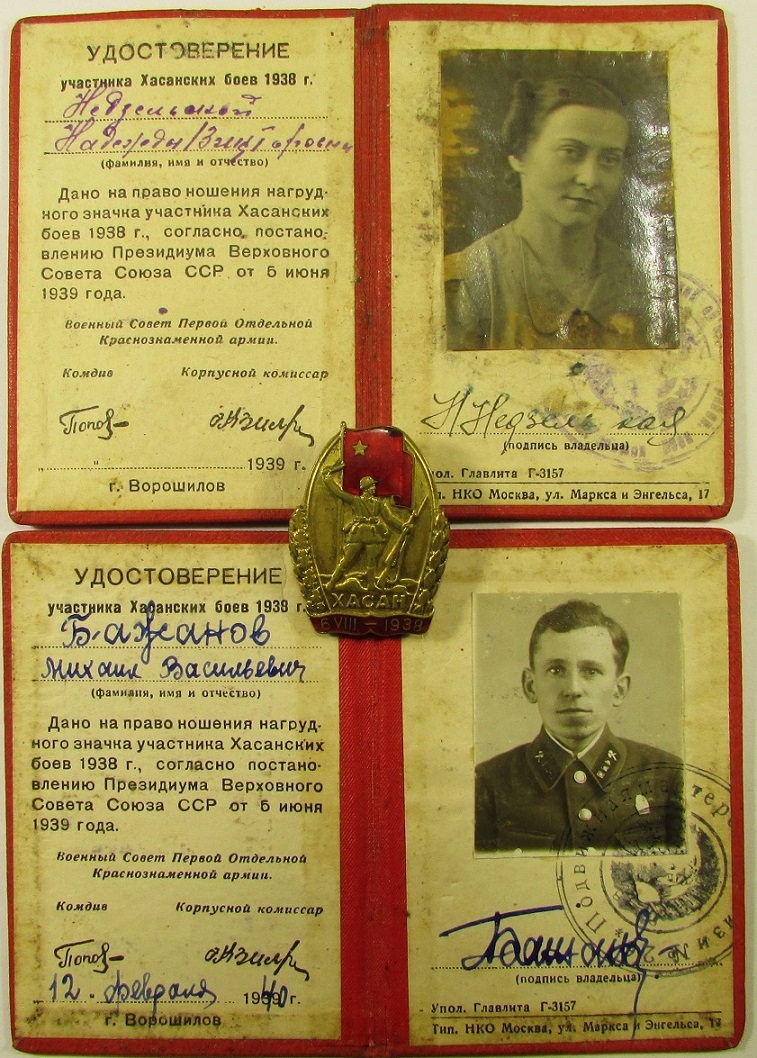 УДОСТОВЕРЕНИЕ
участника Хасанских боев 1938 г.
Недзельской
Надежды Викторовны
(фамилия, имя и отчество)
Дано на право ношения нагруд-
ного значка участника Хасанских
боев 1938 г., согласно, постано-
влению Президиума Верховного
Совета Союза ССР от 5 июня
1939 года.
Военный Совет Первой Отдельной
Краснознаменной армии.
Комдив Корпусной комиссар
Попов
„ " 1939 г.
г. Ворошилов
Н Недзельская
(подпись владельца)
пол. Главлита Г-3157
п. НКО Москва, ул. Маркса и Энгельса, 17
ХАСАН
6 VIII – 1938
УДОСТОВЕРЕНИЕ
участника Хасанских боев 1938 г.
Бажанов
Михаил Васильевич
(фамилия, имя и отчество)
Дано на право ношения нагруд-
ного значка участника Хасанских
боев 1938 г., согласно постано-
влению Президиума Верховного
Совета Союза ССР от 5 июня
1939 года.
Военный Совет Первой Отдельной
Краснознаменной армии.
Комдив Корпусной комиссар
Попов
12 февраля 1940 г.
г. Ворошилов
Бажанов
(подпись владельца)
Упол. Главлита Г-3157
Тип. НКО Москва, ул. Маркса и Энгельса, 17